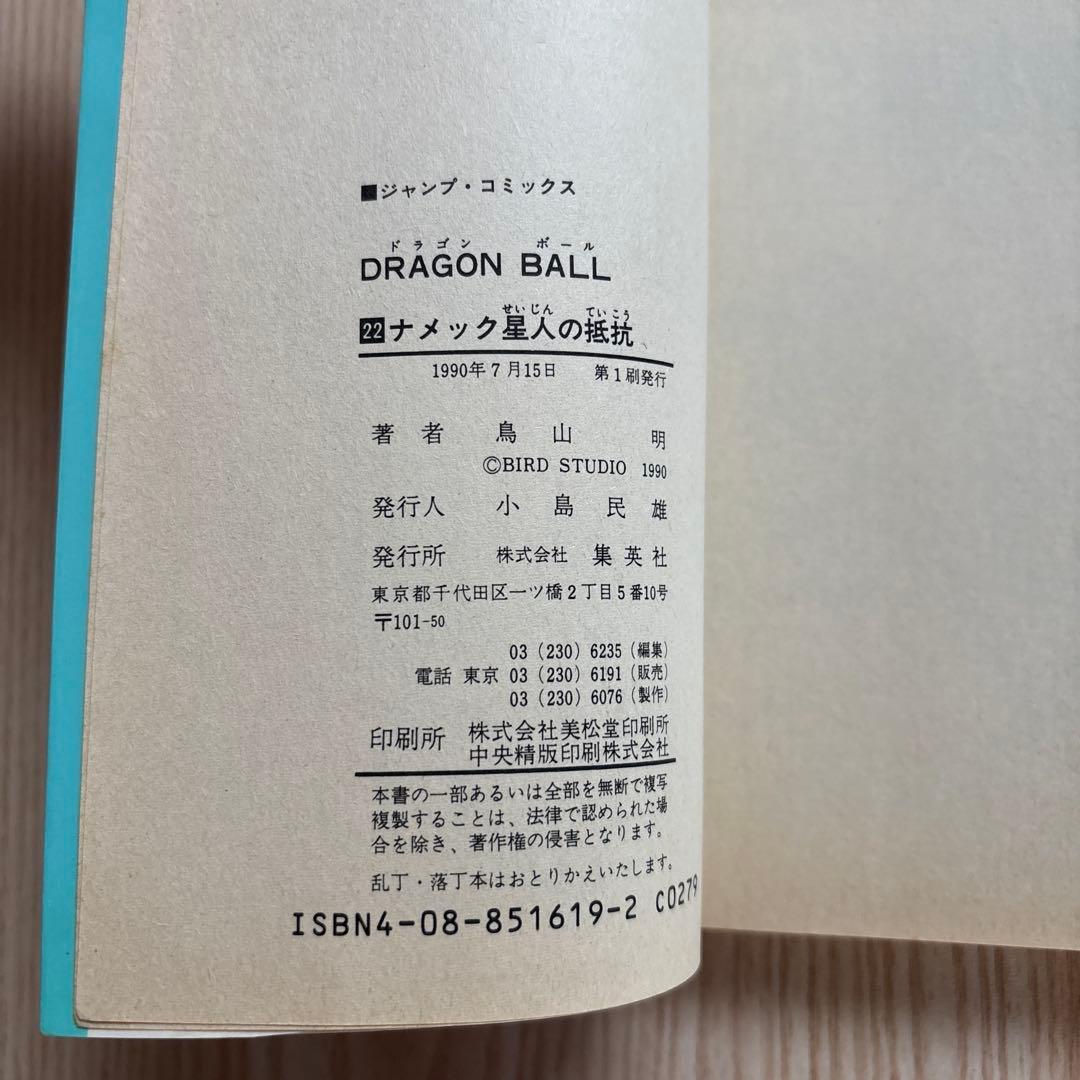 ■ジャンプ・コミックス
ドラゴン ボール
DRAGON BALL
せいじん ていこう
22 ナメック星人の抵抗
1990年7月15日 第1刷発行
著者 鳥山明
©BIRD STUDIO 1990
発行人 小島民雄
発行所 株式会社 集英社
東京都千代田区一ツ橋2丁目5番10号
〒101-50
03(230)6235(編集)
電話 東京 03(230)6191(販売)
03(230)6076(製作)
印刷所 株式会社美松堂印刷所
中央精版印刷株式会社
本書の一部あるいは全部を無断で複写
複製することは、法律で認められた場
合を除き、著作権の侵害となります。
乱丁・落丁本はおとりかえいたします。
ISBN4-08-851619-2 C0279